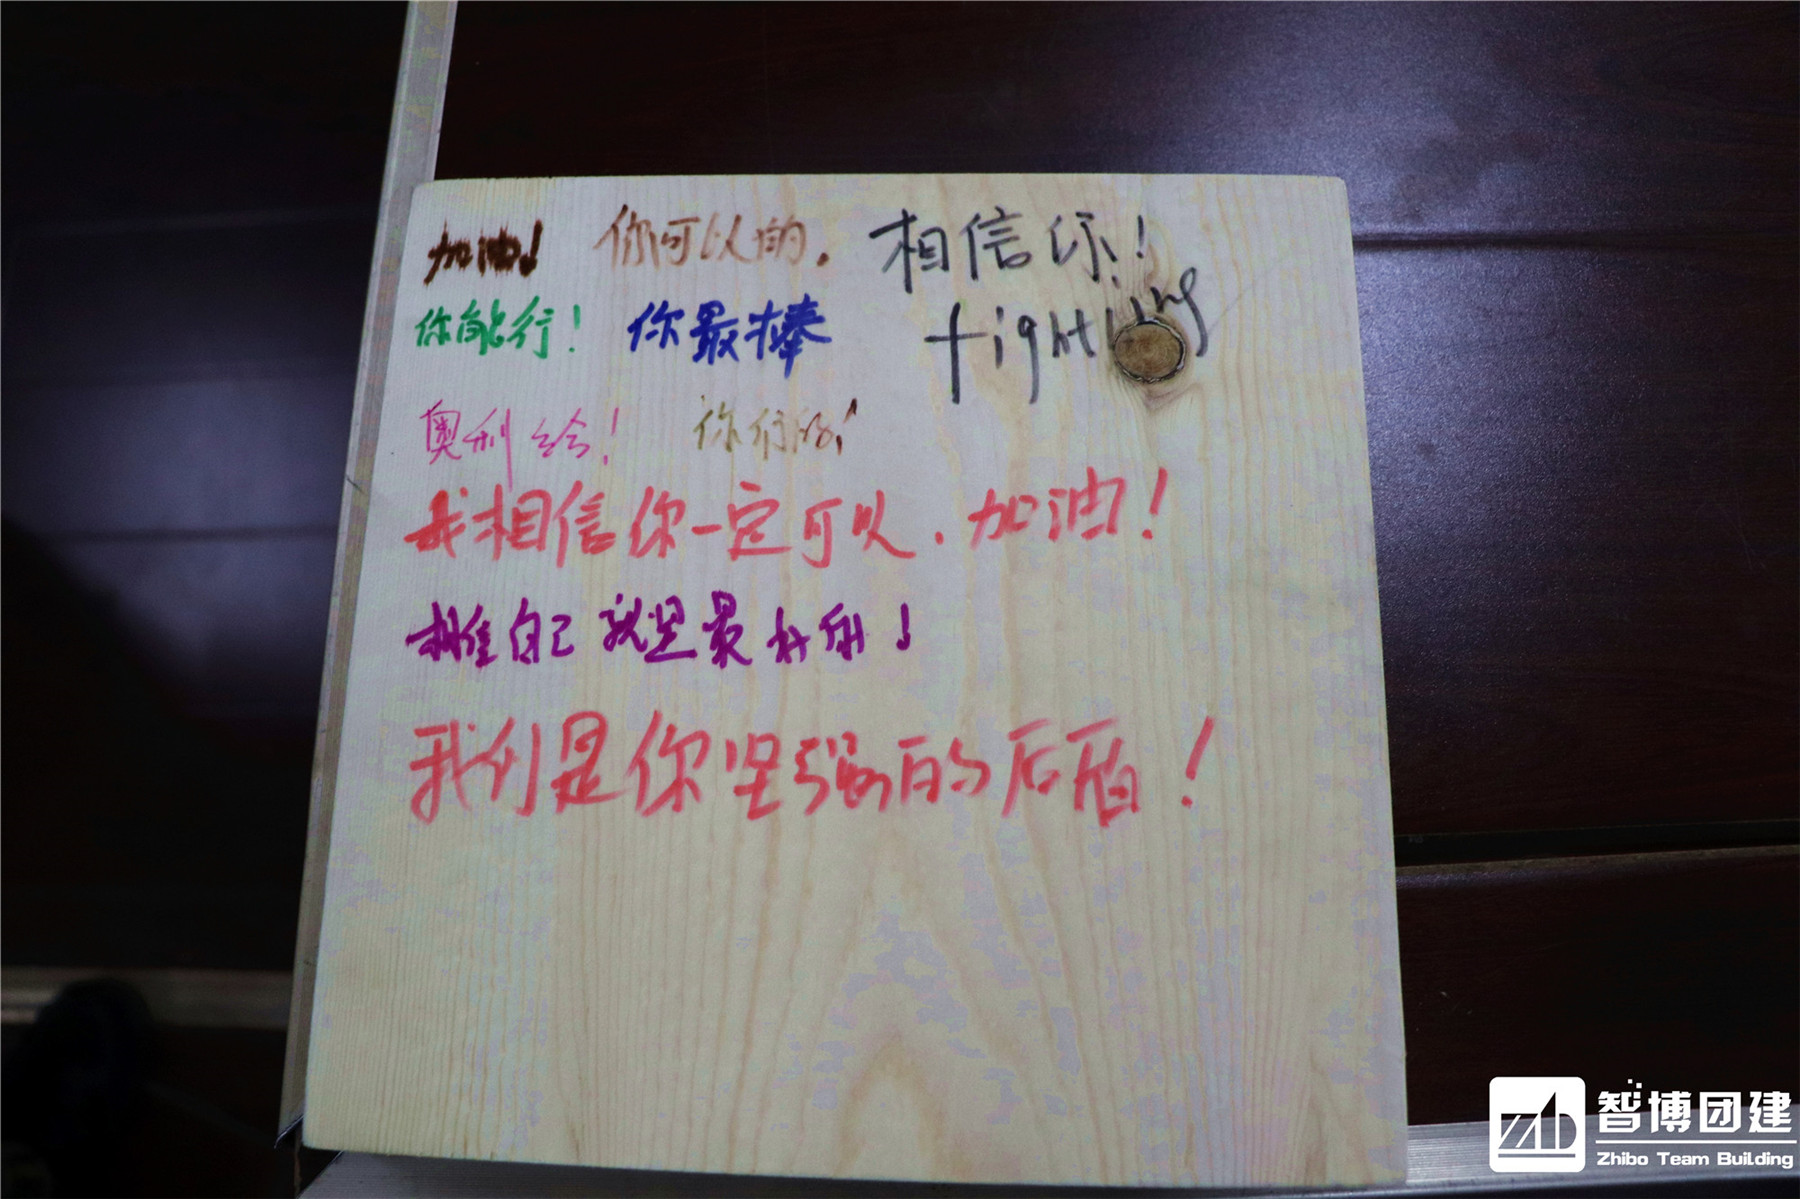 加油! 你可以的. 相信你!
你能行! 你最棒 fighting
奥利给! 你行的!
我相信你一定可以.加油!
相信自己就是最棒的!
我们是你坚强的后盾!
智博团建
Zhibo Team Building